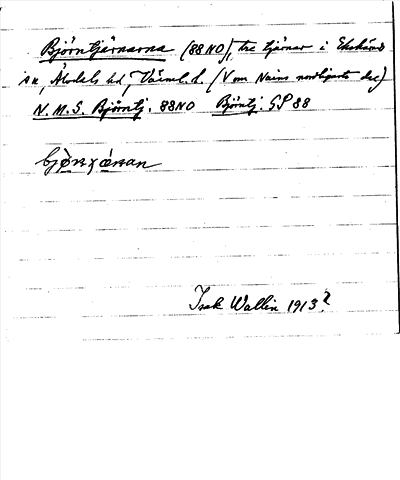 Björntjärnarna (88 NO), tre tjärnar i Ekshärad
sn, Älvdals hd, Värml. l. (V om Nains nordligaste del)
N. M. S. Björntj. 88NO Björntj. GP 88
bjø̀ɳxæ̀ɳan
Isak Wallin 1913?